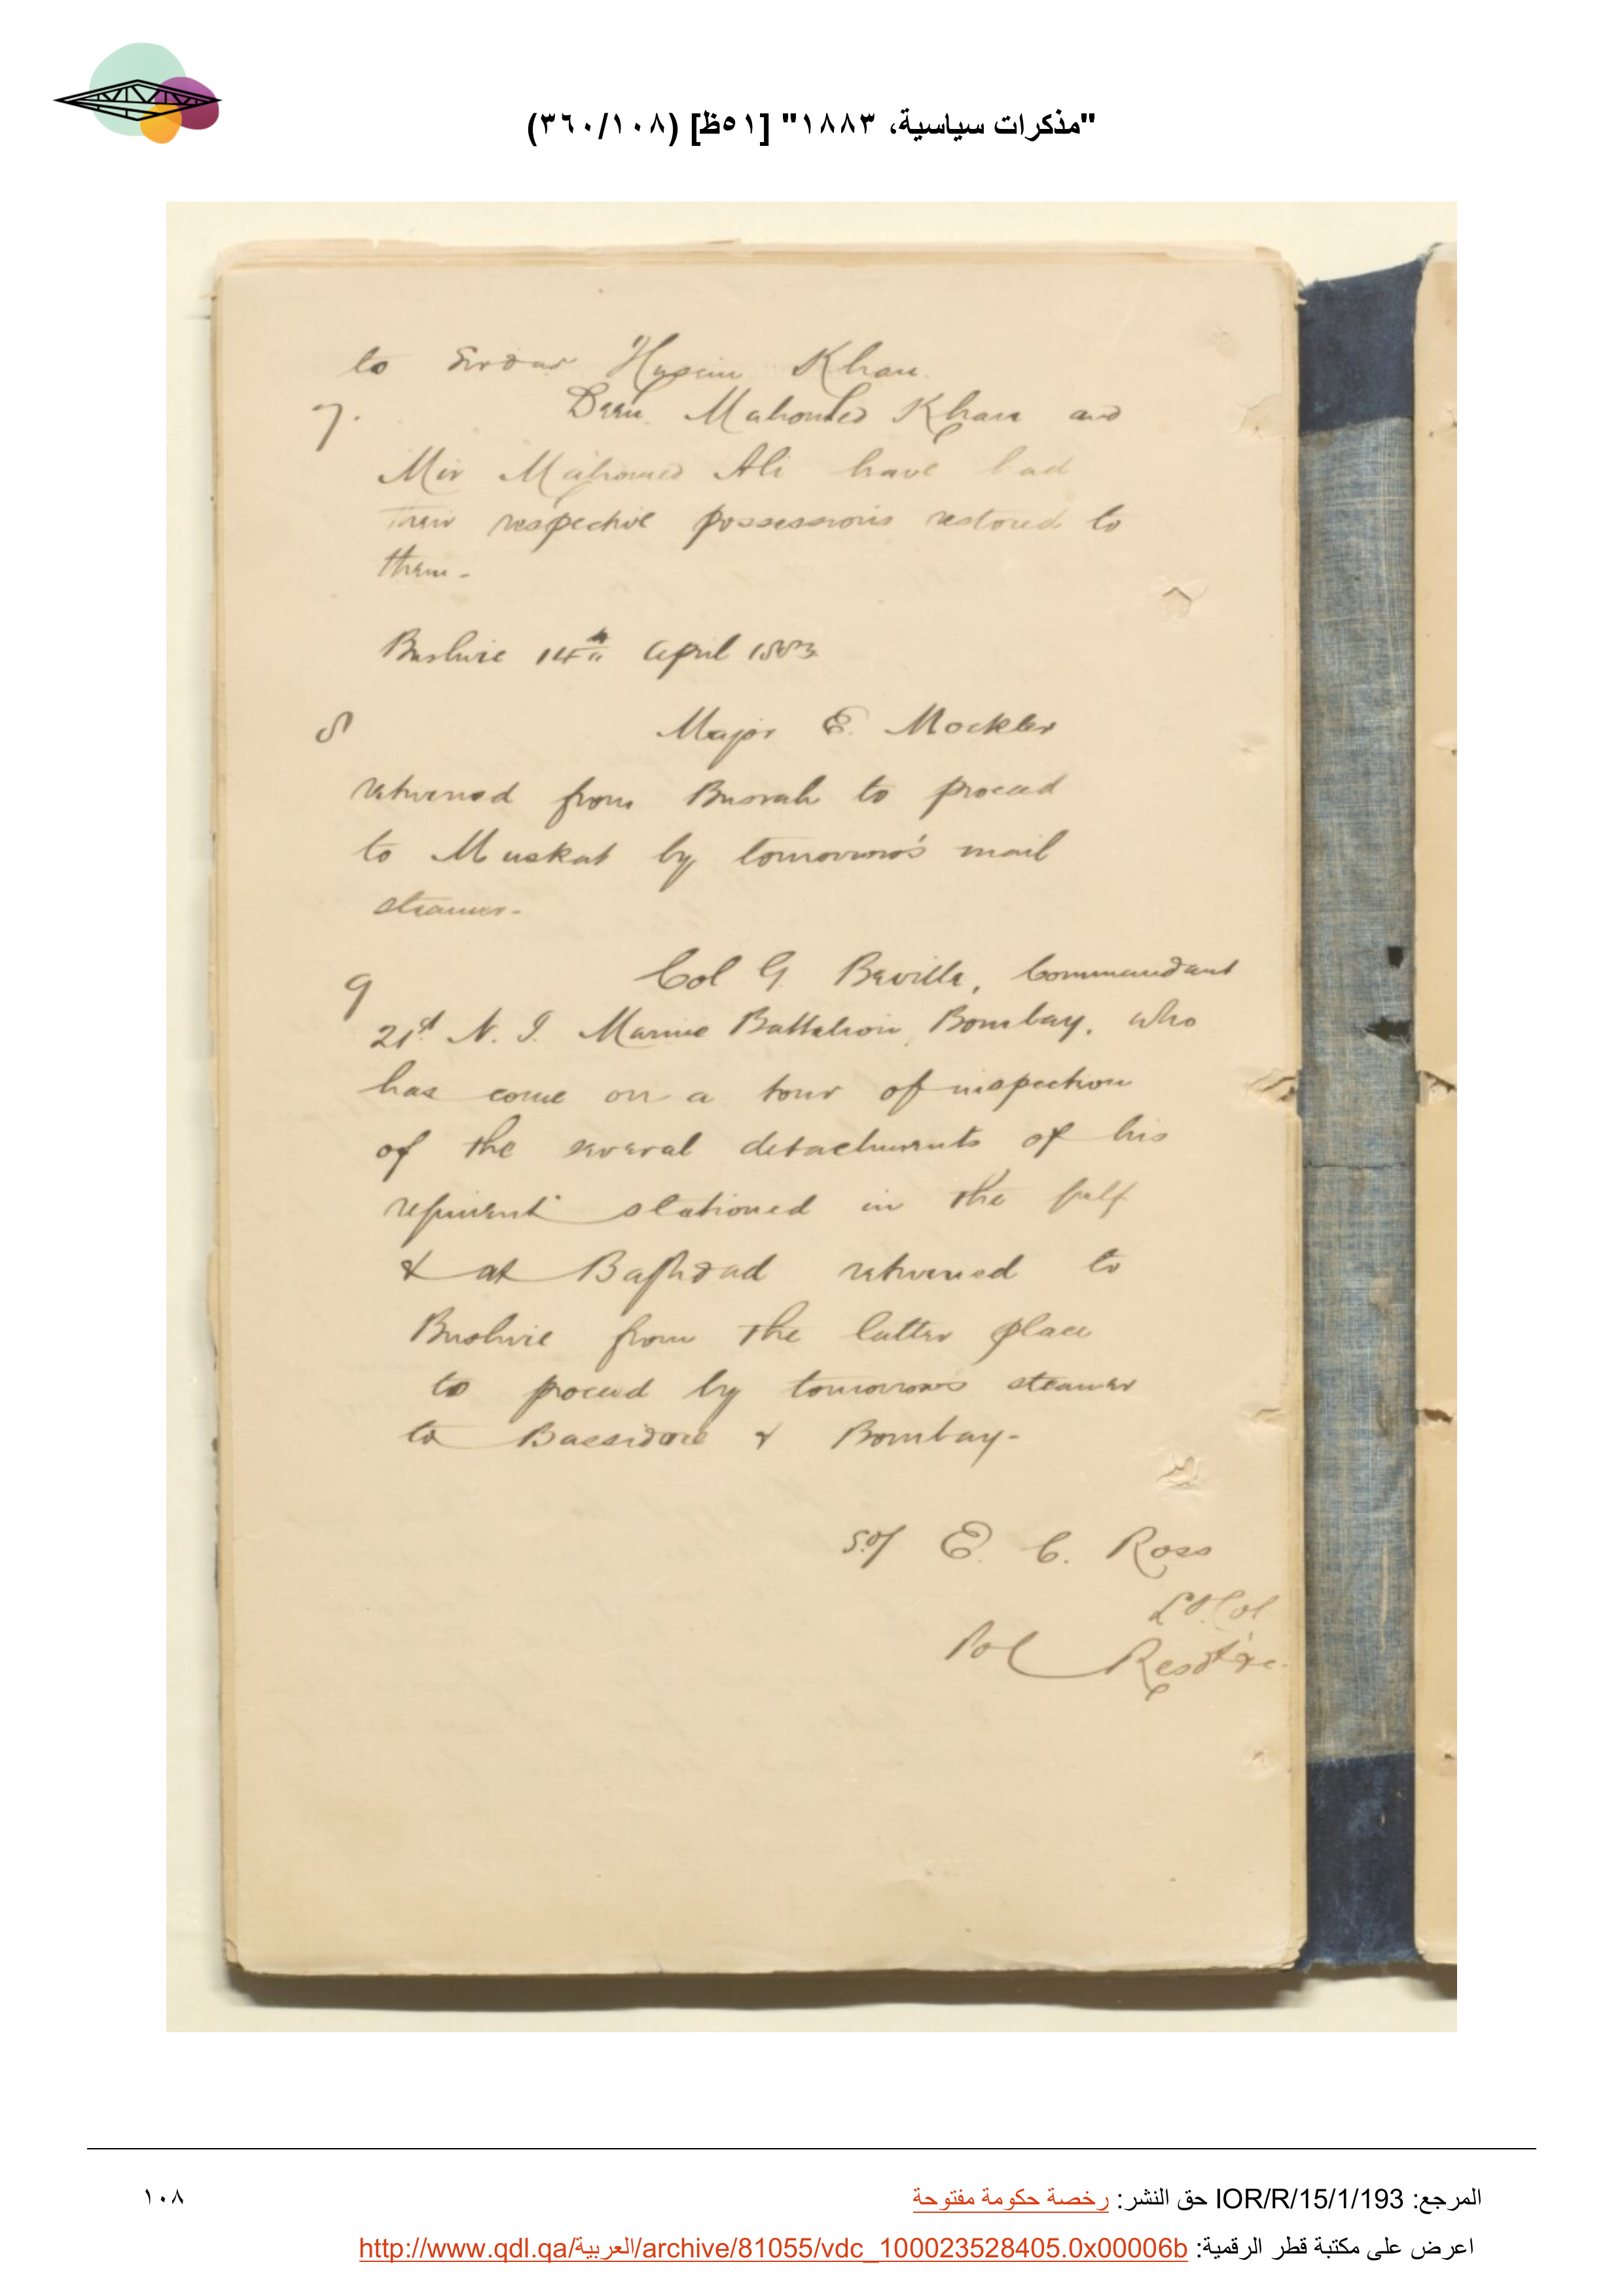 "مذكرات سياسية، ١٨٨٣" [٥١ظ] (٣٦٠/١٠٨)
to Sirdar Husein Khan.
7. Deen Mahomed Khan and
Mir Mahomed Ali have had
their respective possessions restored to
them-
Bushire 14th April 1883
8 Major E. Mockler
returned from Busrah to proceed
to Muskat by tomorrow's mail
steamer-
9 Col G. Beville, Commandant
21st N. I. Marine Battalion, Bombay, who
has come on a tour of inspection
of the several detachments of his
regiment stationed in the gulf
& at Baghdad returned to
Bushire from the latter place
to proceed by tomorrow's steamer
to Bassidore & Bombay-
Sd/ E. C. Ross
Lt. Col
Pol Resdt &c.
المرجع: IOR/R/15/1/193 حق النشر: رخصة حكومة مفتوحة
١٠٨
اعرض على مكتبة قطر الرقمية: http://www.qdl.qa/العربية/archive/81055/vdc_100023528405.0x00006b